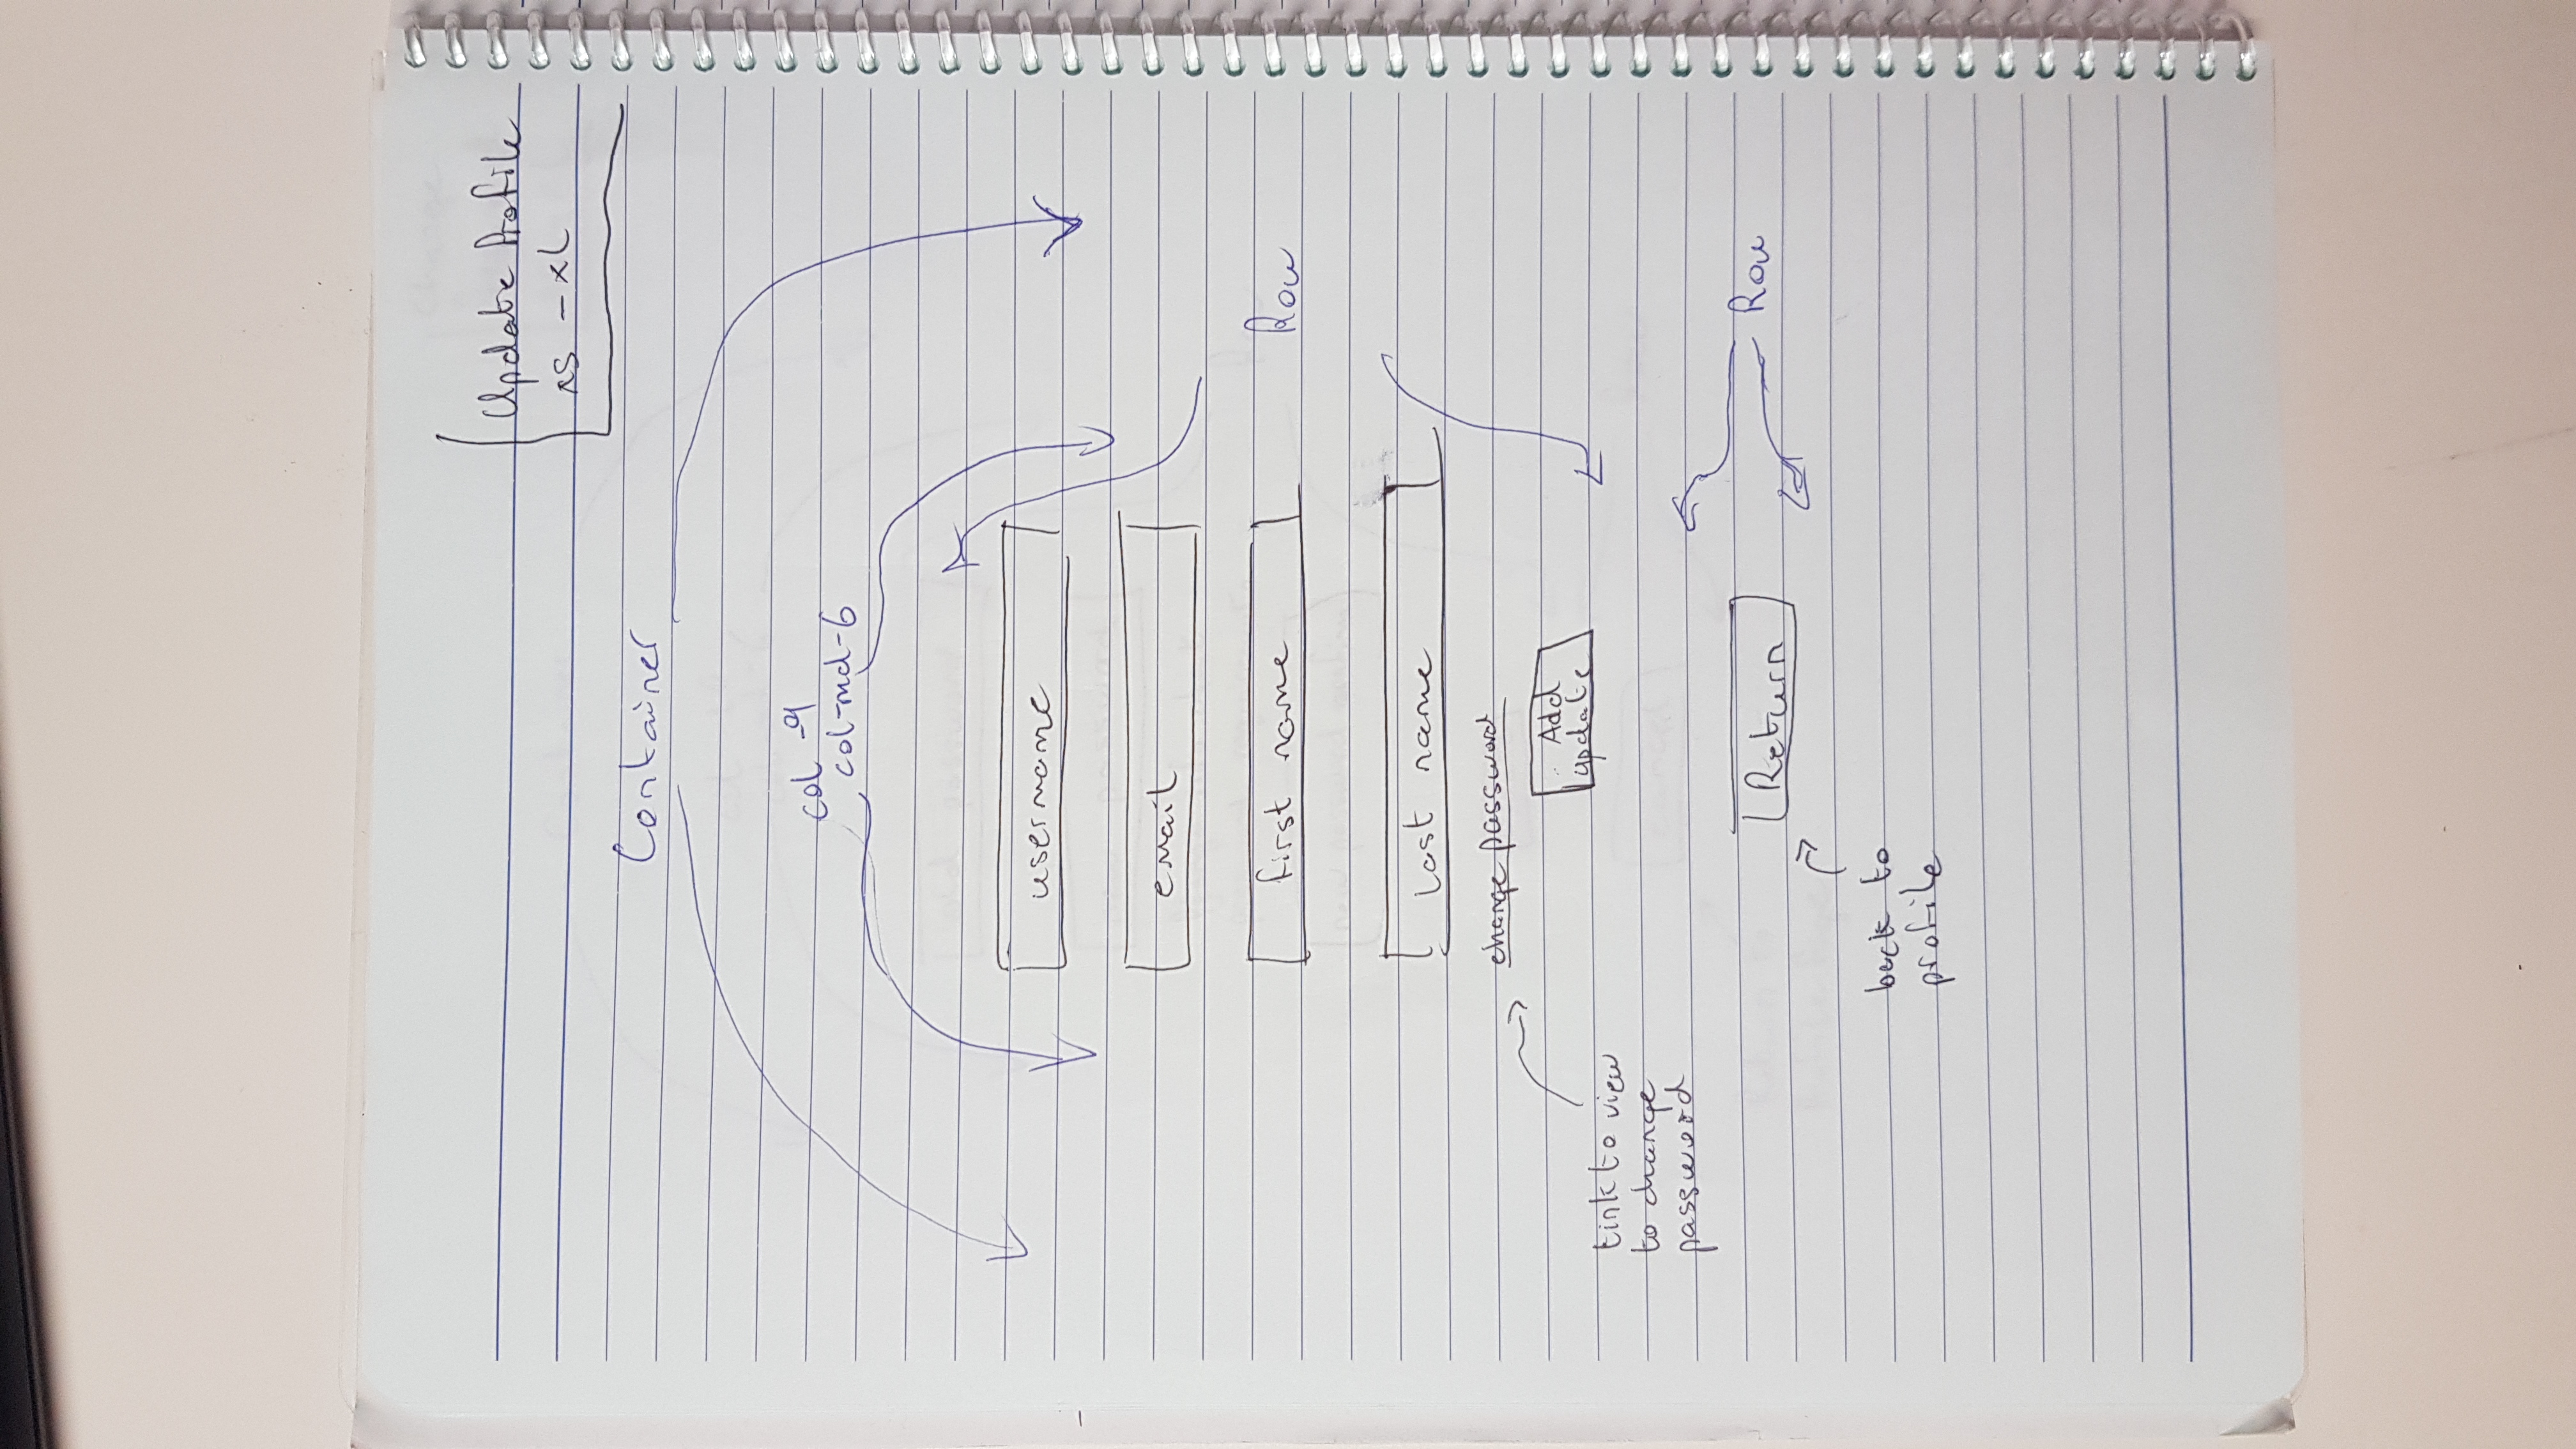 Update Profile
xs - xl
Container
col -9
col-md-6
username
email
first name
Row
last name
change password
Add
update
link to view
to change
password
Return
Row
back to
profile